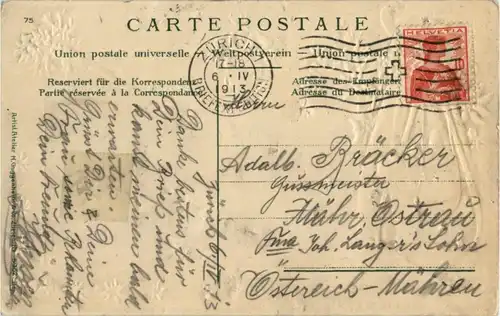 75
CARTE POSTALE
Union postale universelle Weltpostverein Union postale
Reserviert für die Korrespondenz
Partie réservée à la Correspondance
Adresse des Empfängers
Adresse du Destinataire
ZÜRICH 1
17-18
6. IV
1913
BRIEFEXPEDITION
HELVETIA
Herrn
Adalb. Bräcker
Gussmeister
Mähr. Ostrau
Fma Joh. Langer's Sohn
Österreich-Mähren
Zürich 6/IV 13
Danke bestens für
Dein Brief und
kannst meinen bald
erwarten
Grüsst Dir & Deine
Frau
Dein Freund